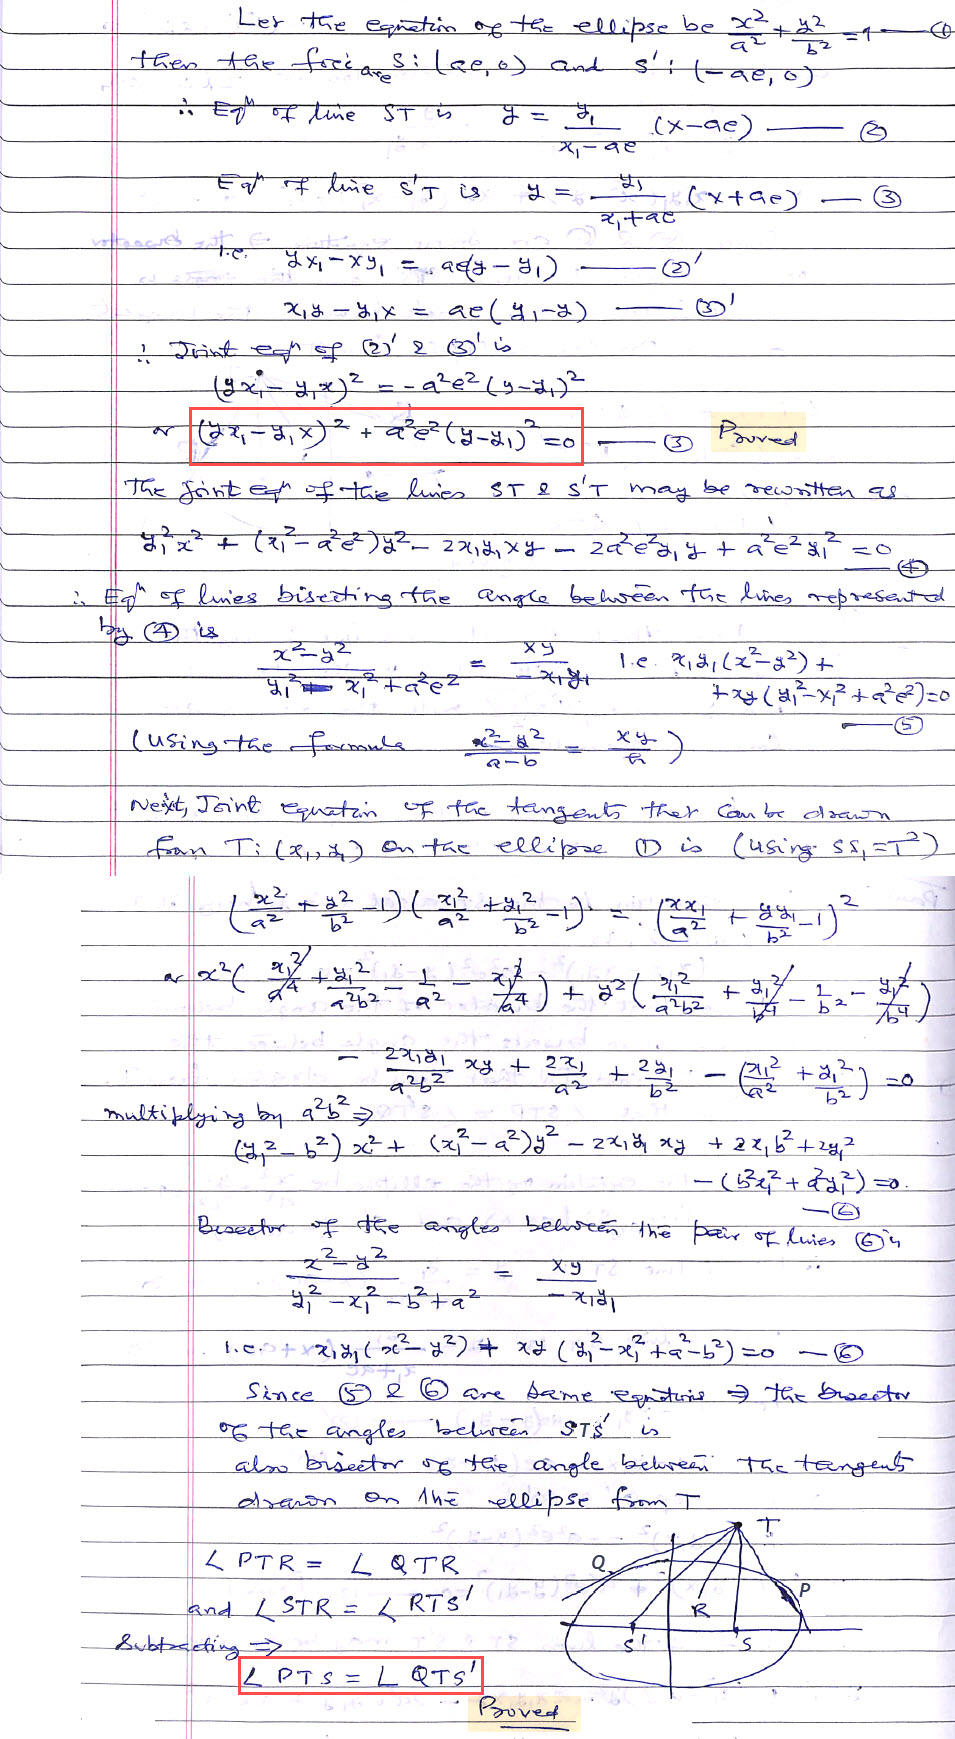 Let the equation of the ellipse be x²/a² + y²/b² = 1 — ①
then the foci are S: (ae, 0) and S': (-ae, 0)
∴ Eqⁿ of line ST is y = y₁/(x₁-ae) (x-ae) — ②
Eqⁿ of line S'T is y = y₁/(x₁+ae) (x+ae) — ③
i.e. yx₁ - xy₁ = ae(y-y₁) — ②'
x₁y - y₁x = ae(y₁-y) — ③'
∴ Joint eqⁿ of ②' & ③' is
(yx₁ - y₁x)² = -a²e²(y-y₁)²
or (yx₁-y₁x)² + a²e²(y-y₁)² = 0 — ③ Proved
The joint eqⁿ of the lines ST & S'T may be rewritten as
y₁²x² + (x₁²-a²e²)y² - 2x₁y₁xy - 2a²e²y₁y + a²e²y₁² = 0 — ④
∴ Eqⁿ of lines bisecting the angle between the lines represented
by ④ is
(x²-y²)/(y₁² - x₁²+a²e²) = xy/(-x₁y₁) i.e. x₁y₁(x²-y²) +
+xy(y₁²-x₁²+a²e²)=0 — ⑤
(using the formula (x²-y²)/(a-b) = xy/h)
Next, Joint equation of the tangents that can be drawn
from T: (x₁, y₁) on the ellipse ① is (using SS₁=T²)
(x²/a² + y²/b² - 1)(x₁²/a² + y₁²/b² - 1) = (xx₁/a² + yy₁/b² - 1)²
or x²(x₁²/a⁴ + y₁²/a²b² - 1/a² - x₁²/a⁴) + y²(x₁²/a²b² + y₁²/b⁴ - 1/b² - y₁²/b⁴)
- 2x₁y₁/a²b² xy + 2x₁/a² + 2y₁/b² - (x₁²/a² + y₁²/b²) = 0
multiplying by a²b² ⇒
(y₁²-b²)x² + (x₁²-a²)y² - 2x₁y₁ xy + 2x₁b² + 2y₁²
- (b²x₁² + a²y₁²) = 0.
— ⑥
Bisector of the angles between the pair of lines ⑥ is
(x²-y²)/(y₁²-x₁²-b²+a²) = xy/(-x₁y₁)
i.e. x₁y₁(x²-y²) + xy(y₁²-x₁²+a²-b²)=0 — ⑥
Since ⑤ & ⑥ are same equations ⇒ the bisector
of the angles between STS' is
also bisector of the angle between the tangents
drawn on the ellipse from T
T
∠ PTR = ∠ QTR
Q
P
and ∠STR = ∠RTS'
R
Subtracting ⇒
S'
S
∠ PTS = ∠ QTS'
Proved